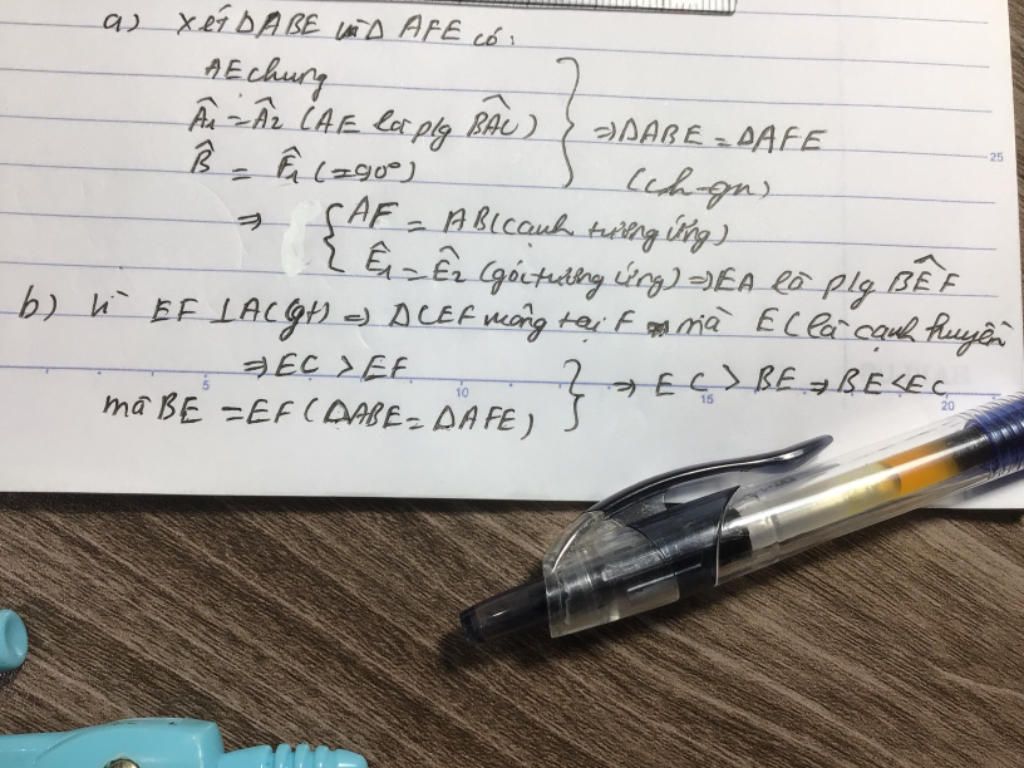 a) Xét ΔABE và Δ AFE có:
AE chung
Â1 = Â2 (AE là p/g BÂC)
B̂ = F̂1 (=90°)
⇒ ΔABE = ΔAFE
(ch-gn)
25
⇒ { AF = AB (cạnh tương ứng)
Ê1 = Ê2 (góc tương ứng) ⇒ EA là p/g BÊF
b) Vì EF ⊥ AC (gt) ⇒ ΔCEF vuông tại F mà EC là cạnh huyền
⇒ EC > EF
mà BE = EF (ΔABE = ΔAFE)
⇒ EC > BE ⇒ BE < EC
5 10 15 20